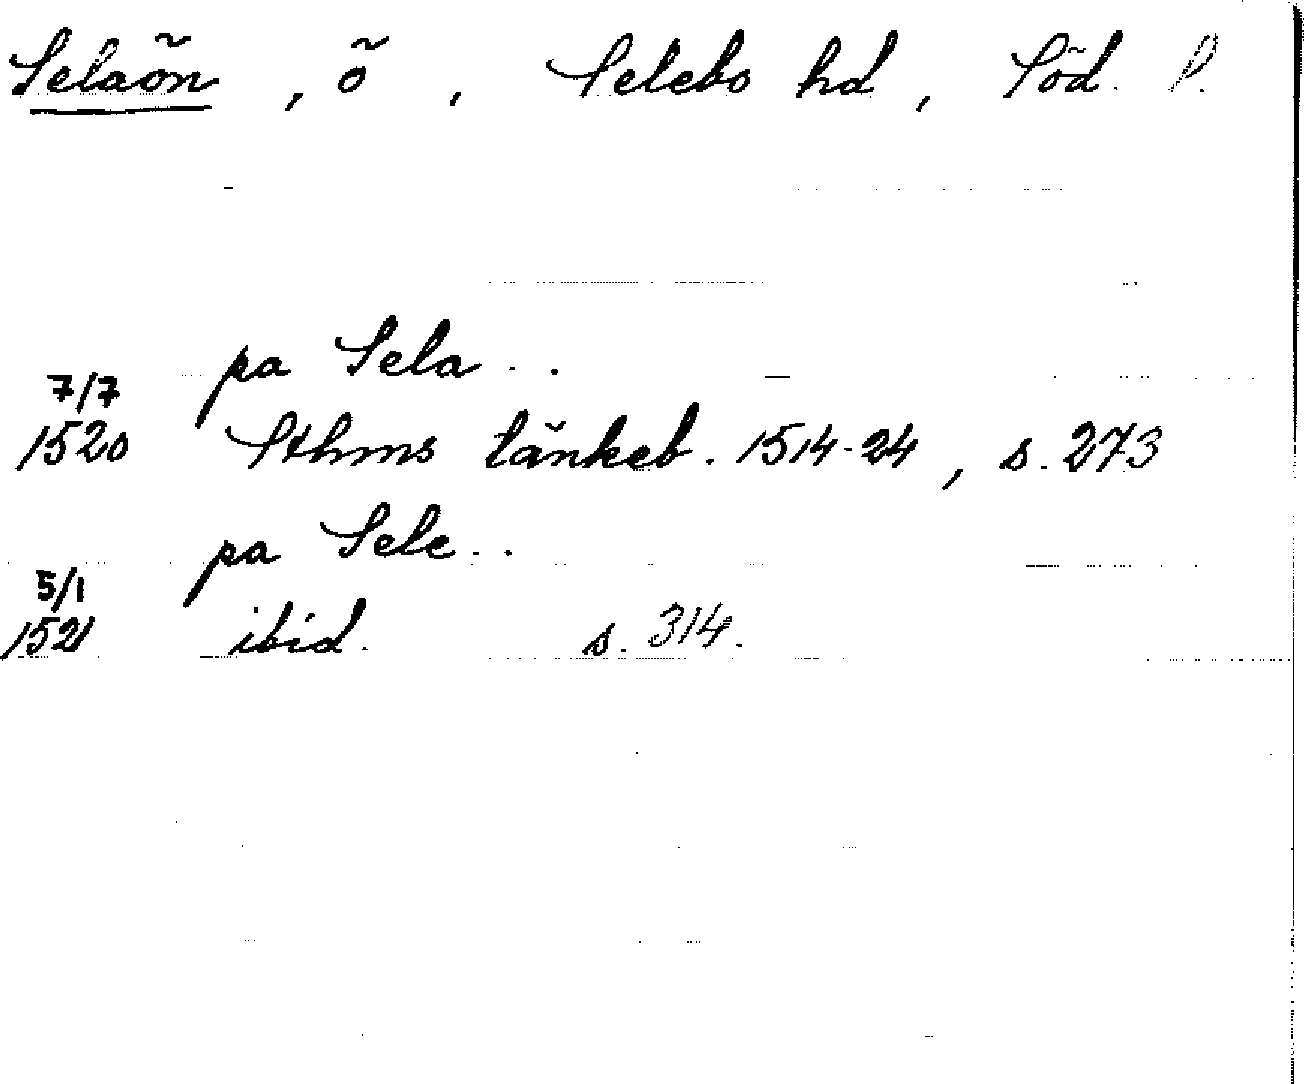 Selaön, ö, Selebo hd, Söd. l.
pa Sela..
7/7
1520 Sthms tänkeb. 1514-24, s. 273
pa Sele..
5/1
1521 ibid. s. 314.